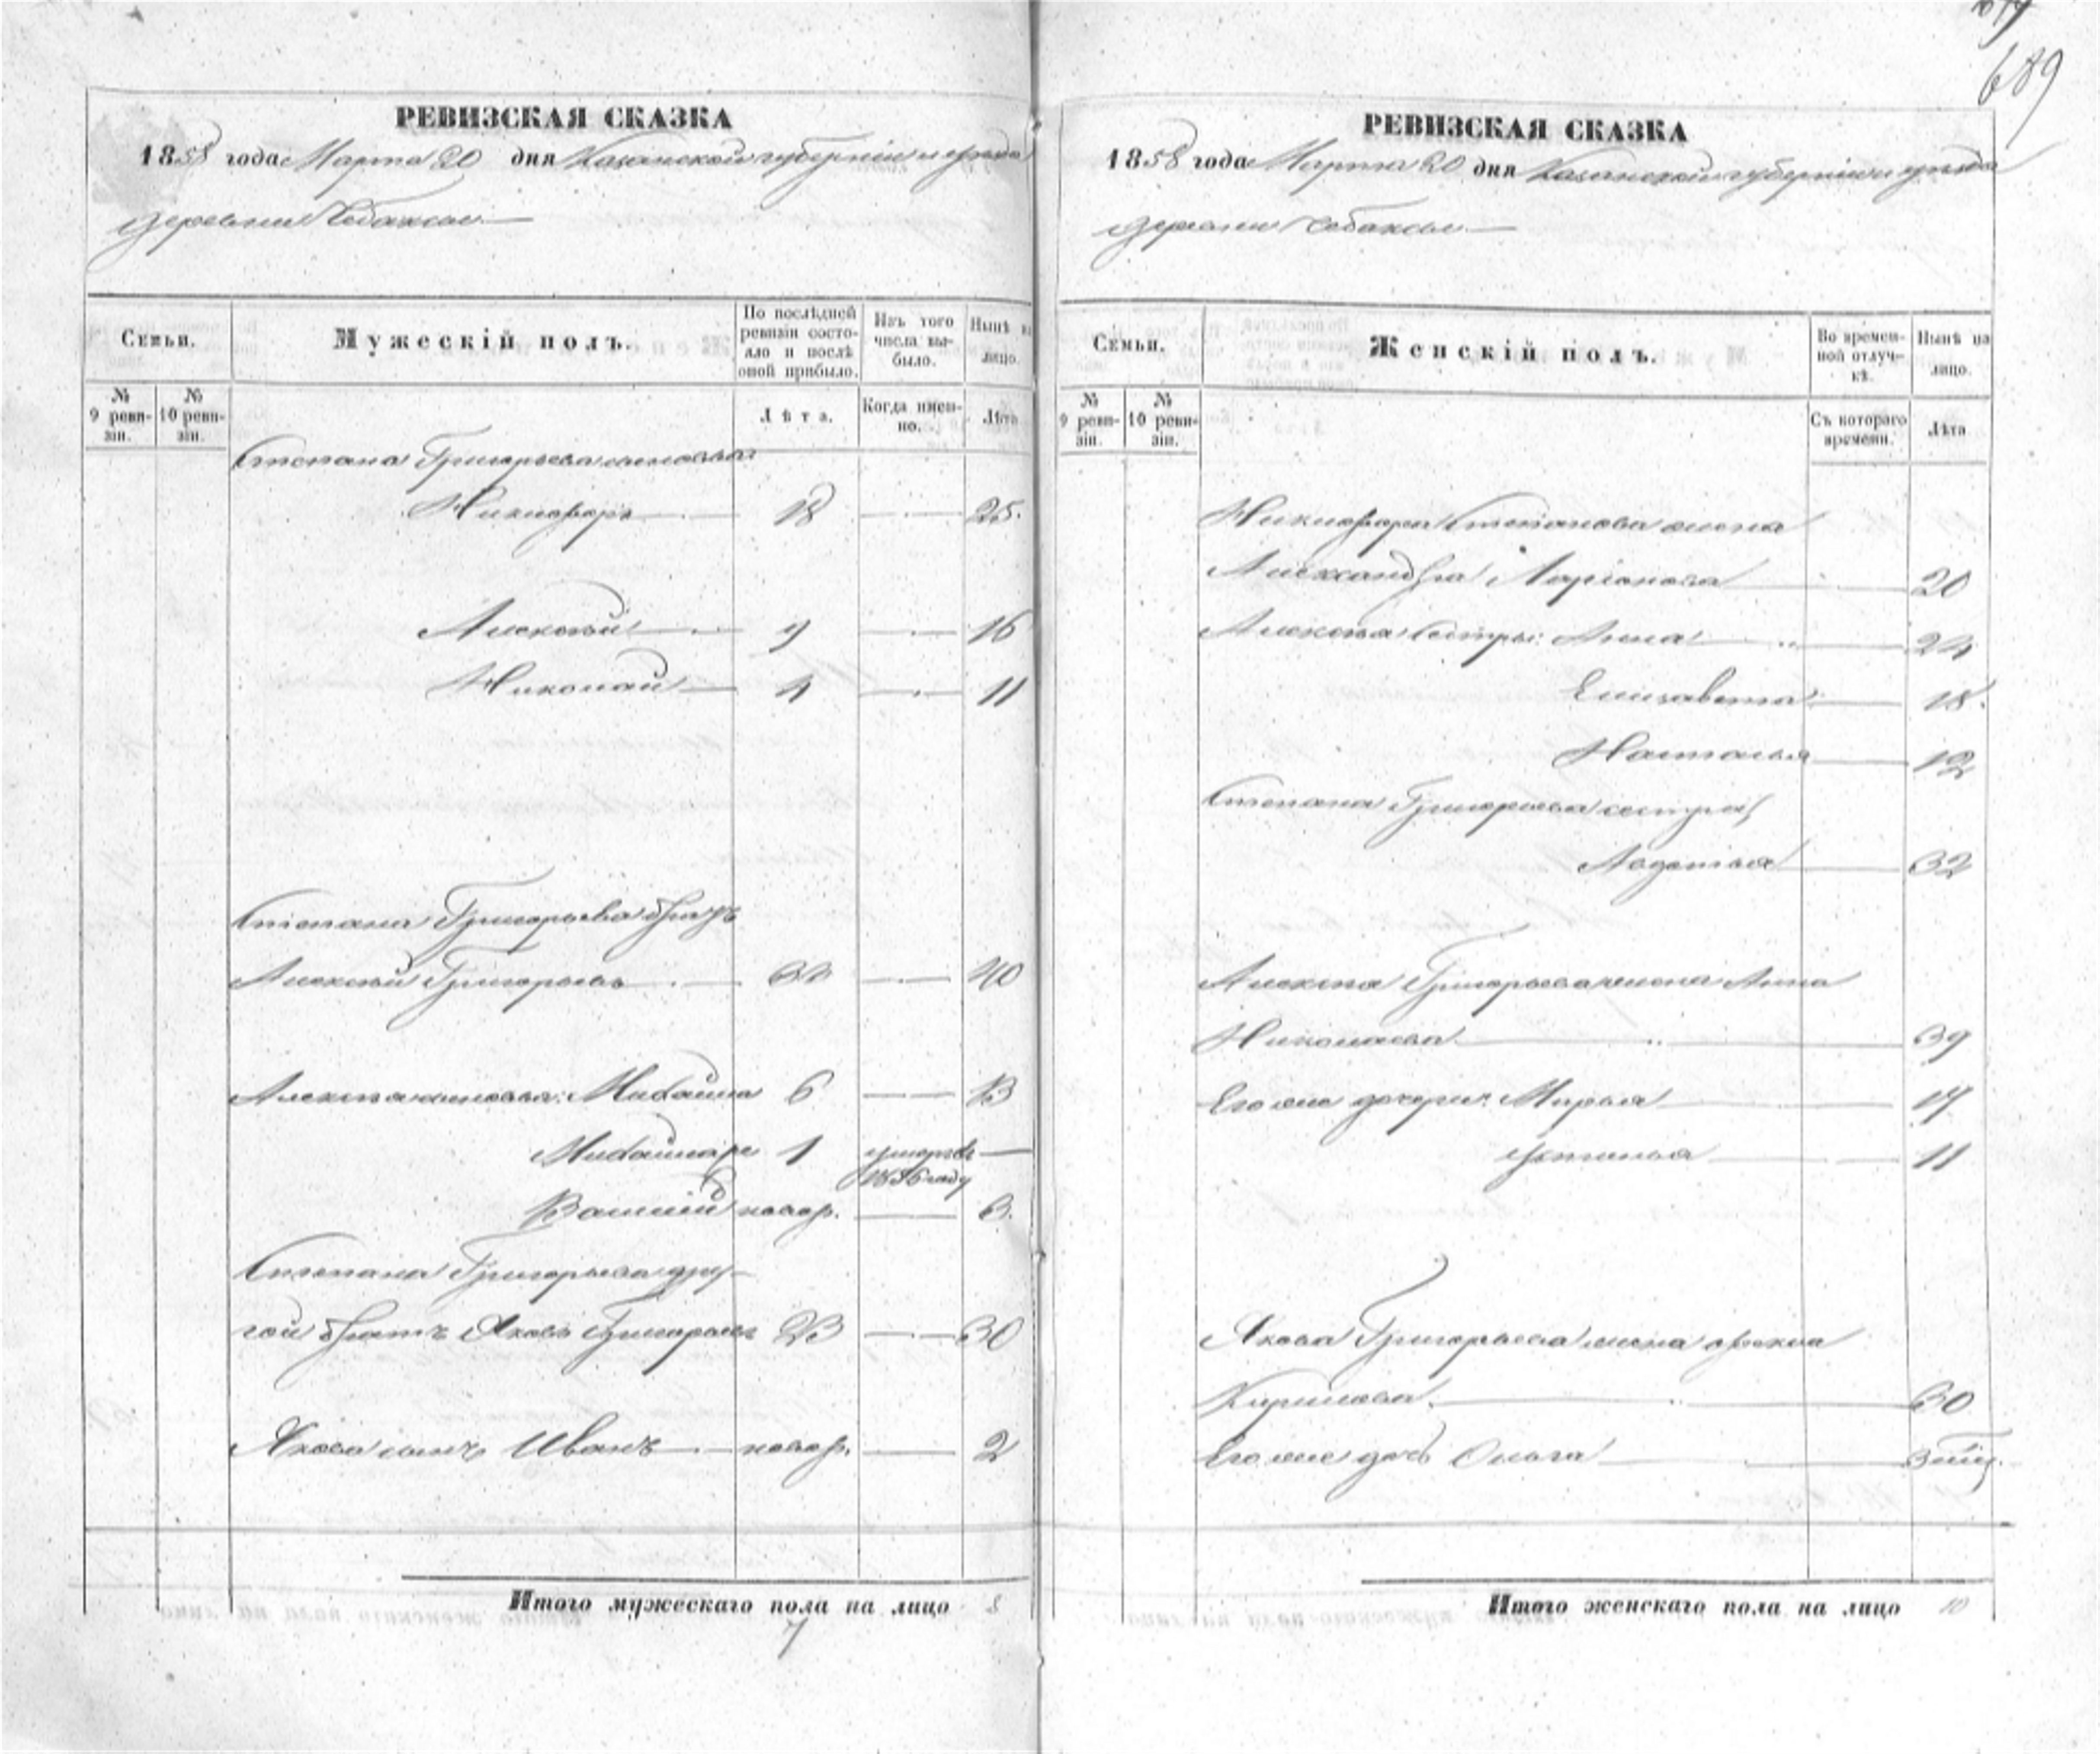 689
РЕВИЗСКАЯ СКАЗКА
1858 года Марта 20 дня Казанской губерніи и уѣзда
деревни Собакы
Семьи.
Мужескій полъ.
По послѣдней ревизіи состояло и послѣ оной прибыло.
Изъ того числа выбыло.
Нынѣ на лицо.
№ 9 ревизіи.
№ 10 ревизіи.
Лѣта.
Когда именно.
Лѣта
Степана Григорьева сыновья
Никифоръ 18 25.
Алексѣй 9 16
Николай 4 11
Степана Григорьева братъ
Алексѣй Григорьевъ 33 40
Алексѣя сыновья: Михайла 6 13
Михайла 1 умеръ въ 1856 году
Василій новор. 3.
Степана Григорьева дру-
гой братъ Яковъ Григорьевъ 23 30
Якова сынъ Иванъ новор. 2
Итого мужескаго пола на лицо 8
7
РЕВИЗСКАЯ СКАЗКА
1858 года Марта 20 дня Казанской губерніи и уѣзда
деревни Собакы
Семьи.
Женскій полъ.
Во временной отлучкѣ.
Нынѣ на лицо.
№ 9 ревизіи.
№ 10 ревизіи.
Съ котораго времени.
Лѣта
Никифора Степанова жена
Александра Ларіонова 20
Алексѣя сестры: Анна 24
Елизавета 18.
Наталья 12
Степана Григорьева сестра
Авдотья 32
Алексѣя Григорьева жена Анна
Николаева 39
Его же дочери: Марья 17
Устинья 11
Якова Григорьева жена Фекла
Кирилова 30
Его же дочь Ольга 3 мѣс.
Итого женскаго пола на лицо 10